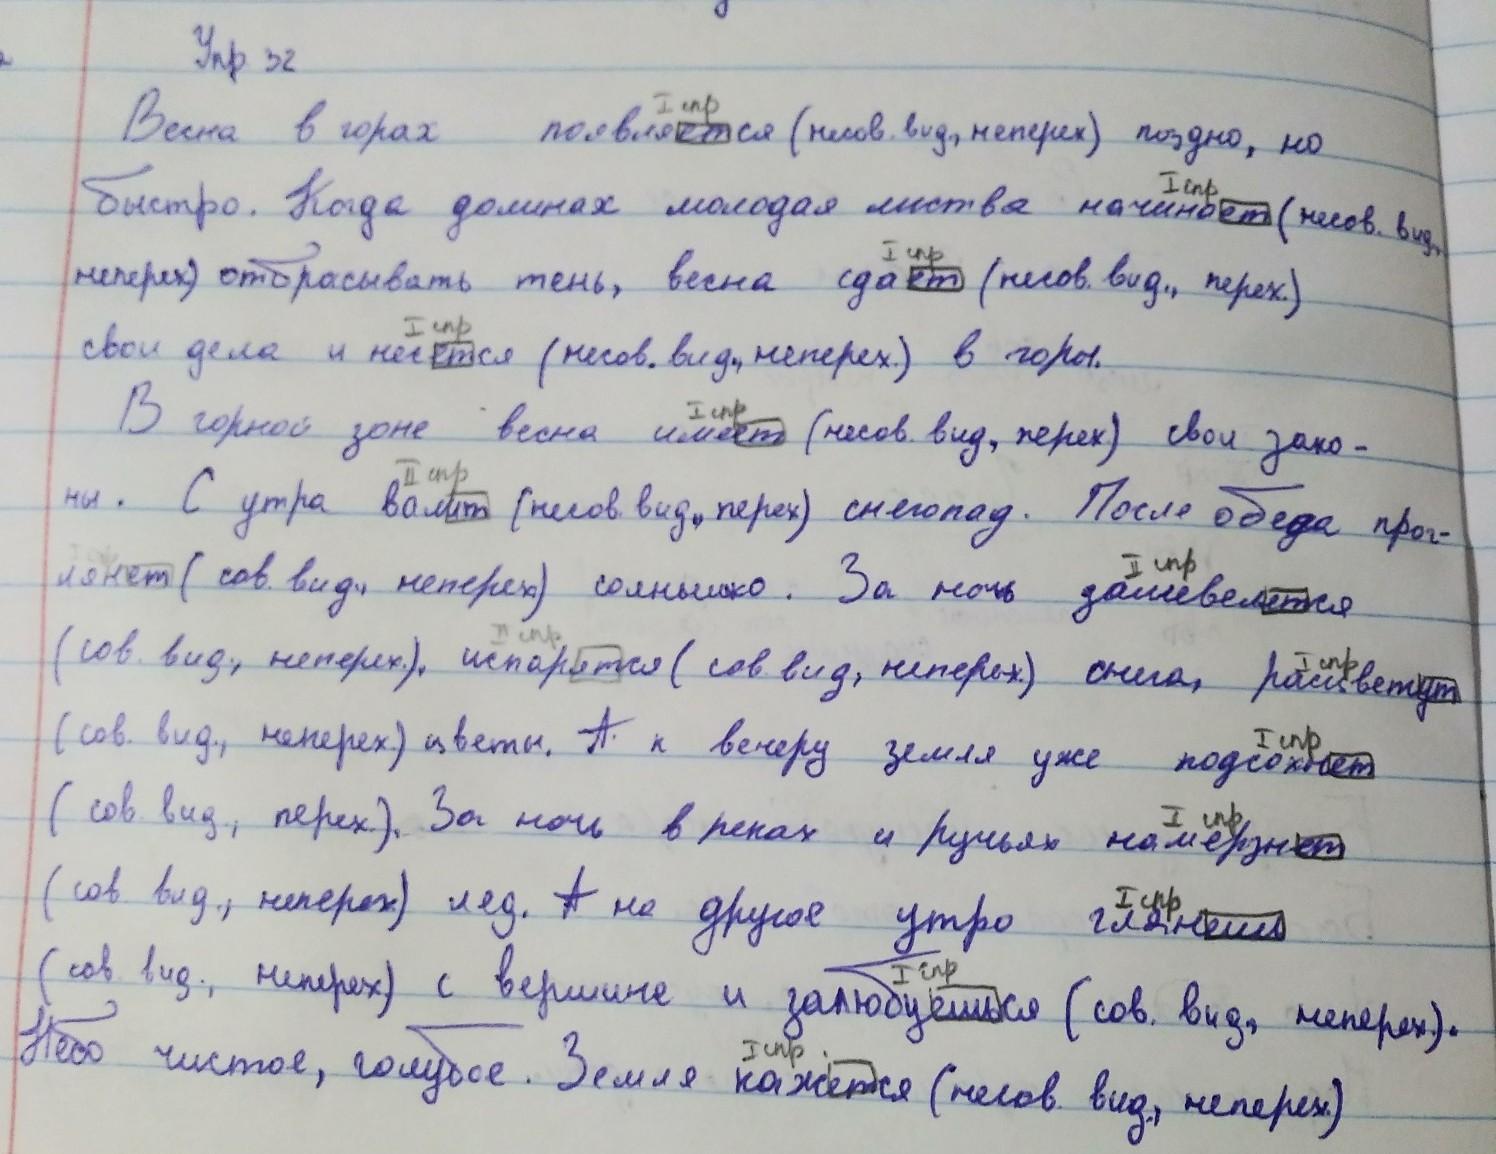 Упр 32
I спр
Весна в горах появляется (несов. вид., неперех) поздно, но
I спр
быстро. Когда долинах молодая листва начинает (несов. вид.,
I спр
неперех) отбрасывать тень, весна сдает (несов. вид., перех.)
I спр
свои дела и несется (несов. вид., неперех.) в горы.
I спр
В горной зоне весна имеет (несов. вид, перех) свои зако-
II спр
ны. С утра валит (несов. вид., перех) снегопад. После обеда прог-
II спр
лянет (сов. вид., неперех) солнышко. За ночь зашевелятся
II спр I спр
(сов. вид., неперех.), испарятся (сов вид, неперех) снега, расцветут
I спр
(сов. вид., неперех.) цветы. А к вечеру земля уже подсохнет
I спр
(сов. вид., перех.). За ночь в реках и ручьях намерзнет
I спр
(сов. вид., неперех) лед. А на другое утро глянешь
I спр
(сов. вид., неперех) с вершине и залюбуешься (сов. вид., неперех).
I спр.
Небо чистое, голубое. Земля кажется (несов. вид., неперех.)